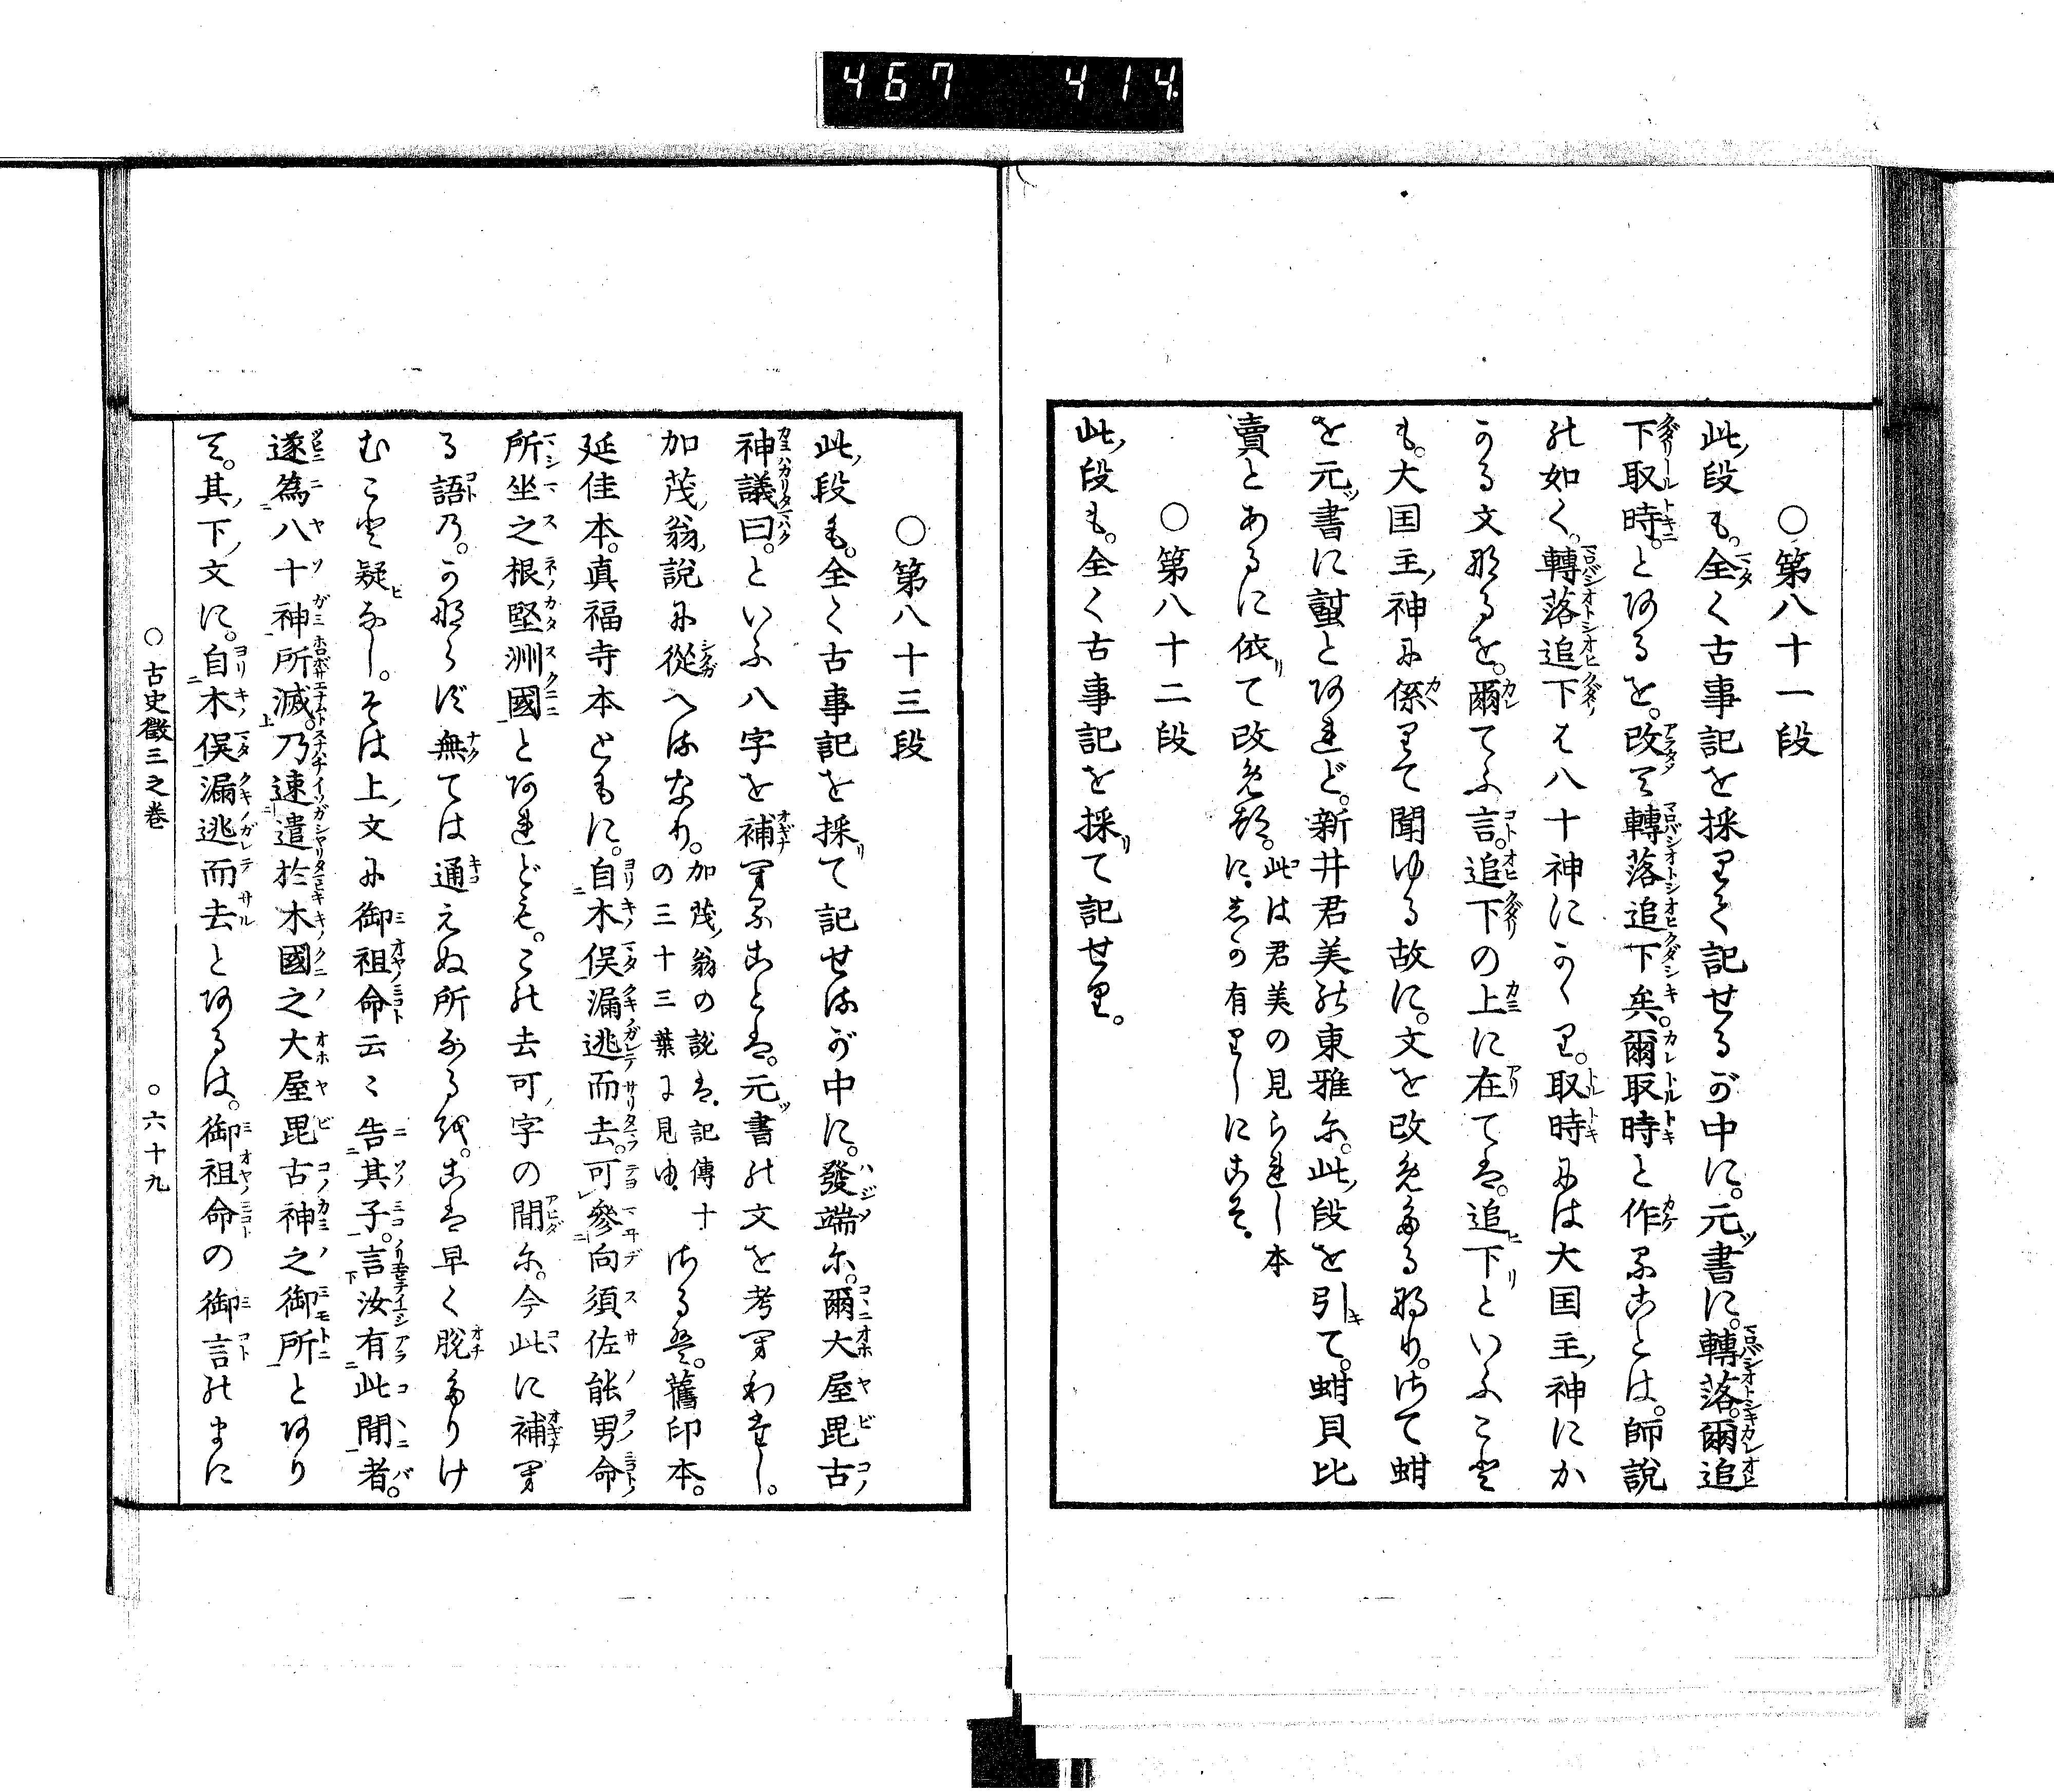 467 414
○第八十一段
此ノ段も。全く古事記を採りて記せるが中に。元ツ書に。轉落。爾追
下取時。とあるを。改て轉落追下矣。爾取時と作ることは。師說
の如く。轉落追下は八十神にかゝり。取時には大国主ノ神にか
かる文なるを。爾てふ言。追下の上に在ては。追下といふこと
も。大国主ノ神に係りて聞ゆる故に。文を改めたるなり。さて蚶
を元ツ書に𧏛とあれど。新井君美の東雅に。此ノ段を引て。蚶貝比
賣とあるに依て改めつ。此は君美の見られし本
に。しか有りしにこそ。
○第八十二段
此ノ段も。全く古事記を採て記せり。
○第八十三段
此ノ段も。全く古事記を採て記せるが中に。發端に。爾大屋毘古
神議曰。といふ八字を補へることは。元ツ書の文を考へわたし。
加茂ノ翁ノ說に從へるなり。加茂ノ翁の說は。記傳十
の三十三葉に見ゆ。さるは。舊印本。
延佳本。眞福寺本ともに。自木俣漏逃而去。可參向須佐能男命
所坐之根堅洲國とあれども。この去可ノ字の間に。今此に補へ
る語乃。かならず無ては通えぬ所なるを。こは早く脫たりけ
むこと疑なし。そは上ノ文に御祖命云々告其子。言汝有此間者。
遂爲八十神所滅。乃速遣於木國之大屋毘古神之御所とあり
て。其ノ下ノ文に。自木俣漏逃而去とあるは。御祖命の御言のまに
○古史徵三之卷 ○六十九